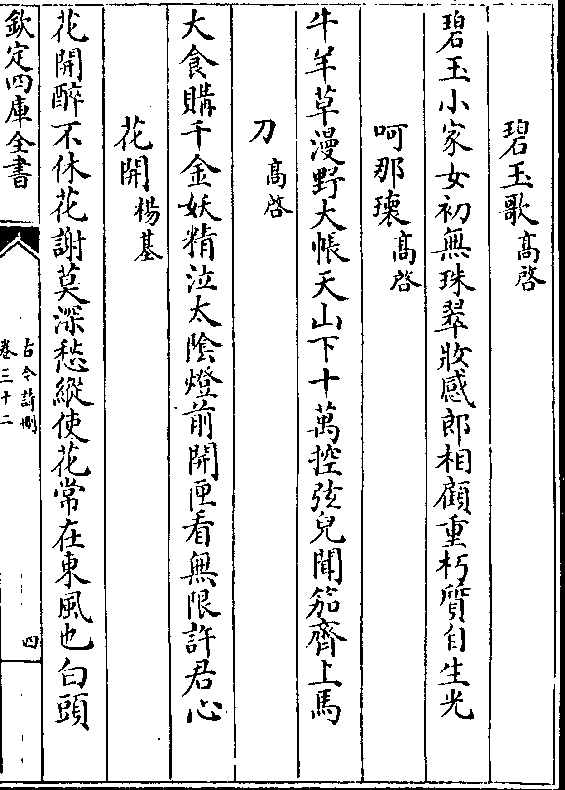 碧玉歌高啓
碧玉小家女初無珠翠妝感郎相顧重朽質自生光
呵那瓌高啓
牛羊草漫野大帳天山下十萬控弦兒聞笳齊上馬
刀高啓
大食購千金妖精泣太陰燈前開匣看無限許君心
花開楊基
花開醉不休花謝莫深愁縱使花常在東風也白頭
欽定四庫全書
古今詩刪
卷三十二
四